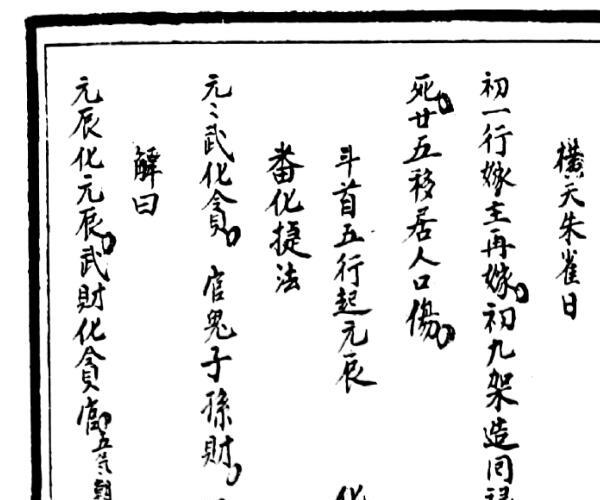 橫天朱雀日
初一行嫁主再嫁。初九架造回祿
死。廿五移居人口傷。
斗首五行起元辰 化
番化捷法
元〻武化貪。官鬼子孫財。
解曰
元辰化元辰。武財化貪官。五炁朝